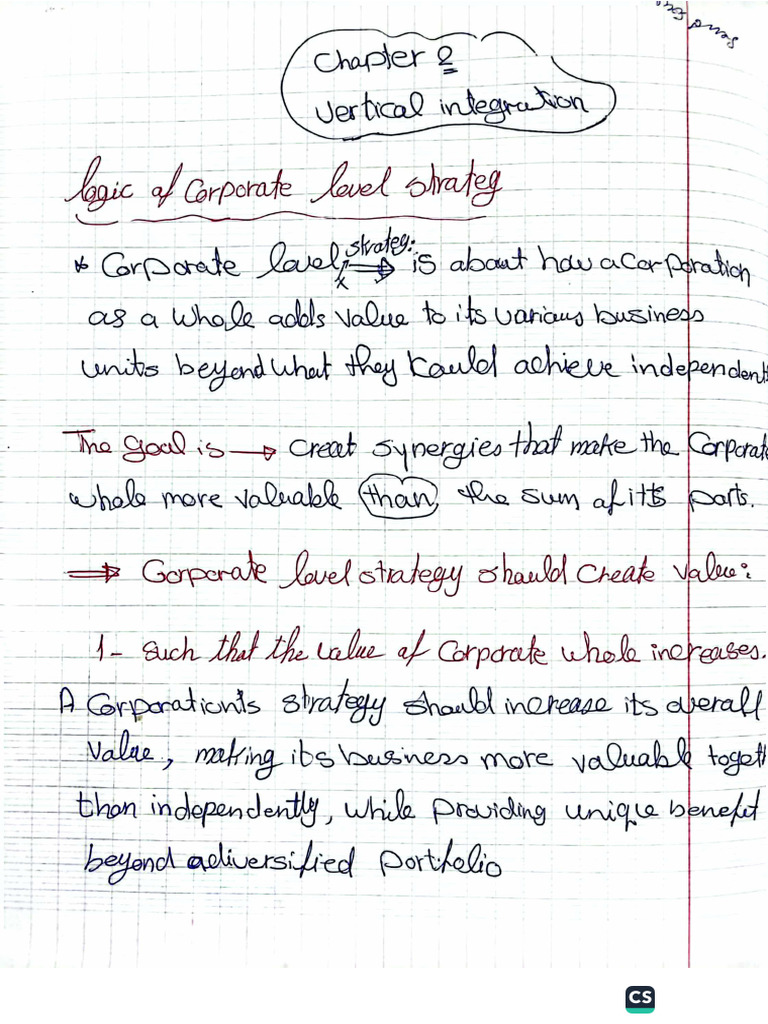 Chapter 2
Vertical integration
logic of Corporate level strateg
* Corporate level strateg: ⇒ is about how a Corporation
as a whole adds value to its various business
units beyond what they Could achieve independent
The goal is → Creat synergies that make the Corporate
whole more valuable than the sum of itts parts.
⇒ Corporate level strategy should Create Value:
1- Such that the value of Corporate whole increases.
A Corporation's strategy should increase its overall
Value, making its business more valuable togeth
than independently, while providing unique benefit
beyond a diversified portfolio
CS